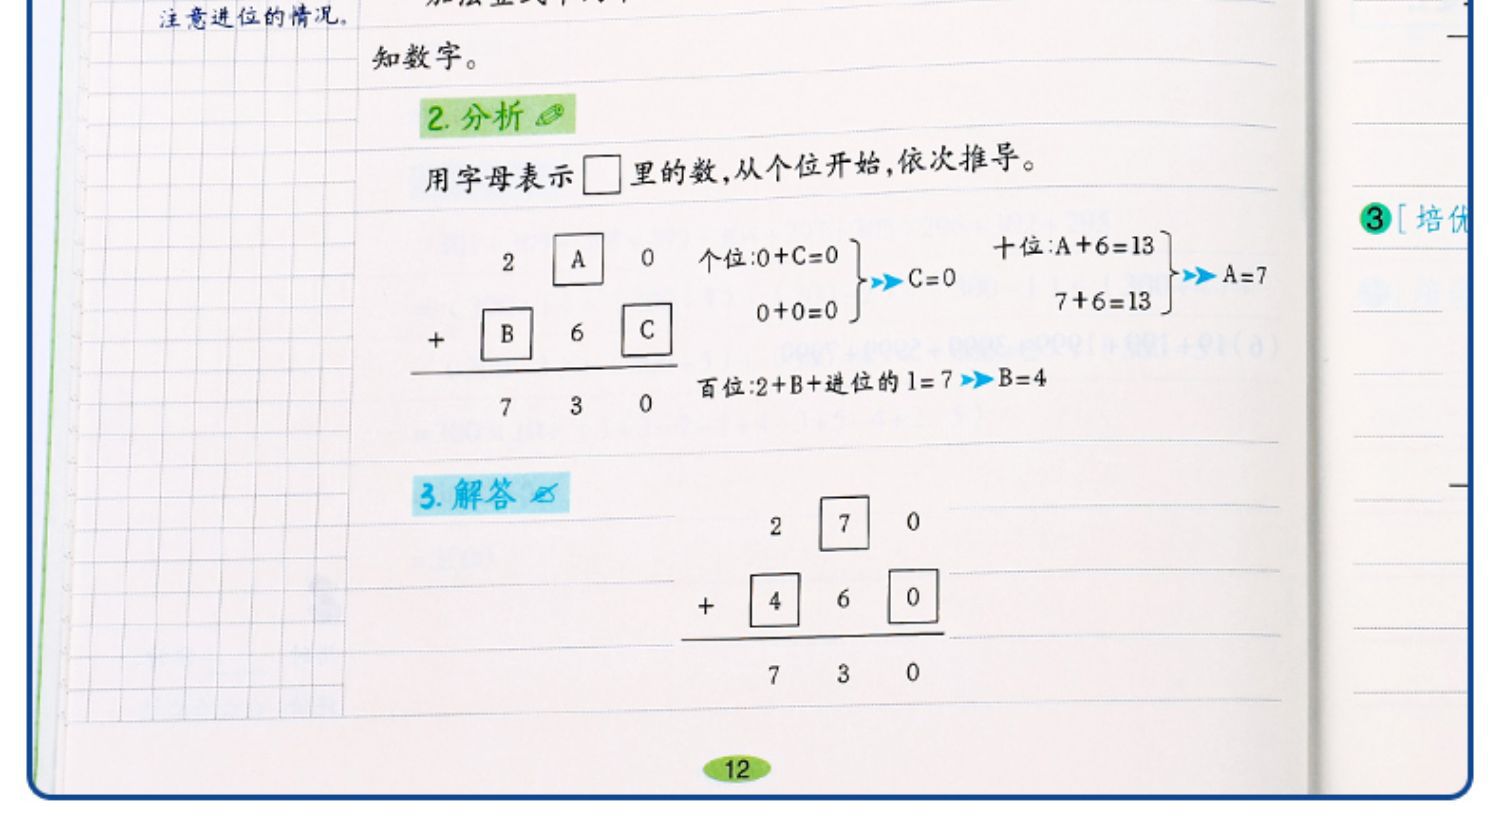 注意进位的情况。
知数字。
2. 分析
用字母表示 □ 里的数,从个位开始,依次推导。
2 A 0
+ B 6 C
7 3 0
个位:0+C=0
0+0=0
C=0
十位:A+6=13
7+6=13
A=7
百位:2+B+进位的1=7 B=4
3. 解答
2 7 0
+ 4 6 0
7 3 0
12
3 [ 培优